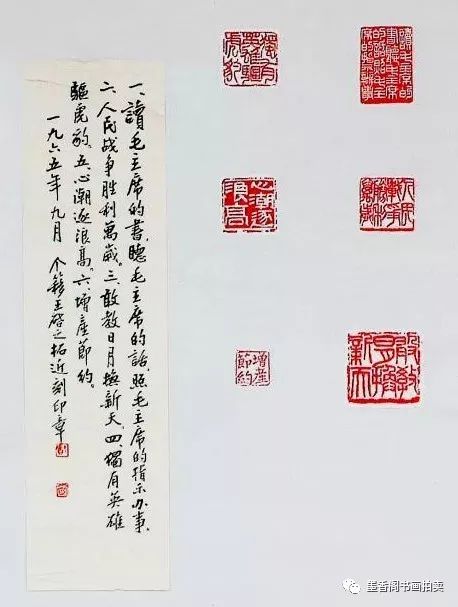 一、讀毛主席的書,聽毛主席的話,照毛主席的指示办事,
二、人民战争胜利萬歲。三、敢教日月換新天,四、獨有英雄
驅虎豹,五、心潮逐浪高。六、增産節約。
一九六五年九月 个簃王啓之拓近刻印章
讀毛主席的
書聽毛主席
的話照毛主
席的指示辦事
獨有
英雄驅
虎豹
人民
戰爭
勝利
萬歲
心潮逐
浪高
敢教
日月換
新天
增產
節約
墨香阁书画拍卖